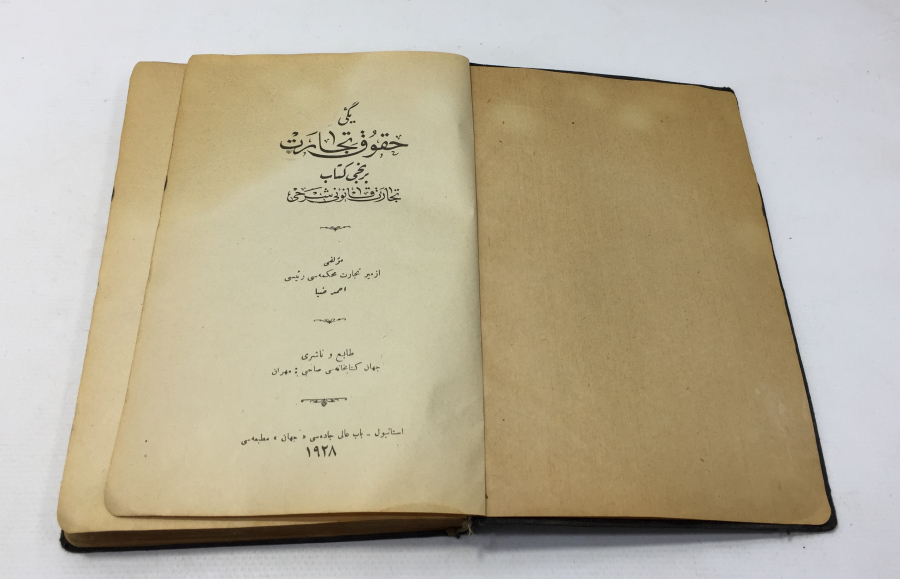 یڭی
حقوق تجارت
برنجی کتاب
تجارت قانونی شرحی
مؤلفی
ازمیر تجارت محکمه‌سی رئیسی
احمد ضیا
طابع و ناشری
جهان کتابخانه‌سی صاحبی : مهران
استانبول - باب عالی جاده‌سی « جهان » مطبعه‌سی
۱۹۲۸